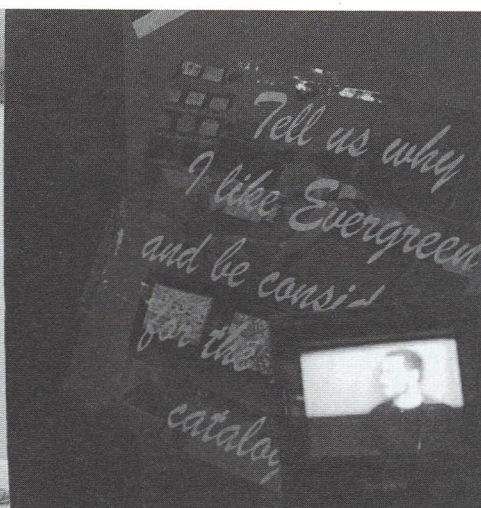 Tell us why
I like Evergreen
and be consid
for the
catalog